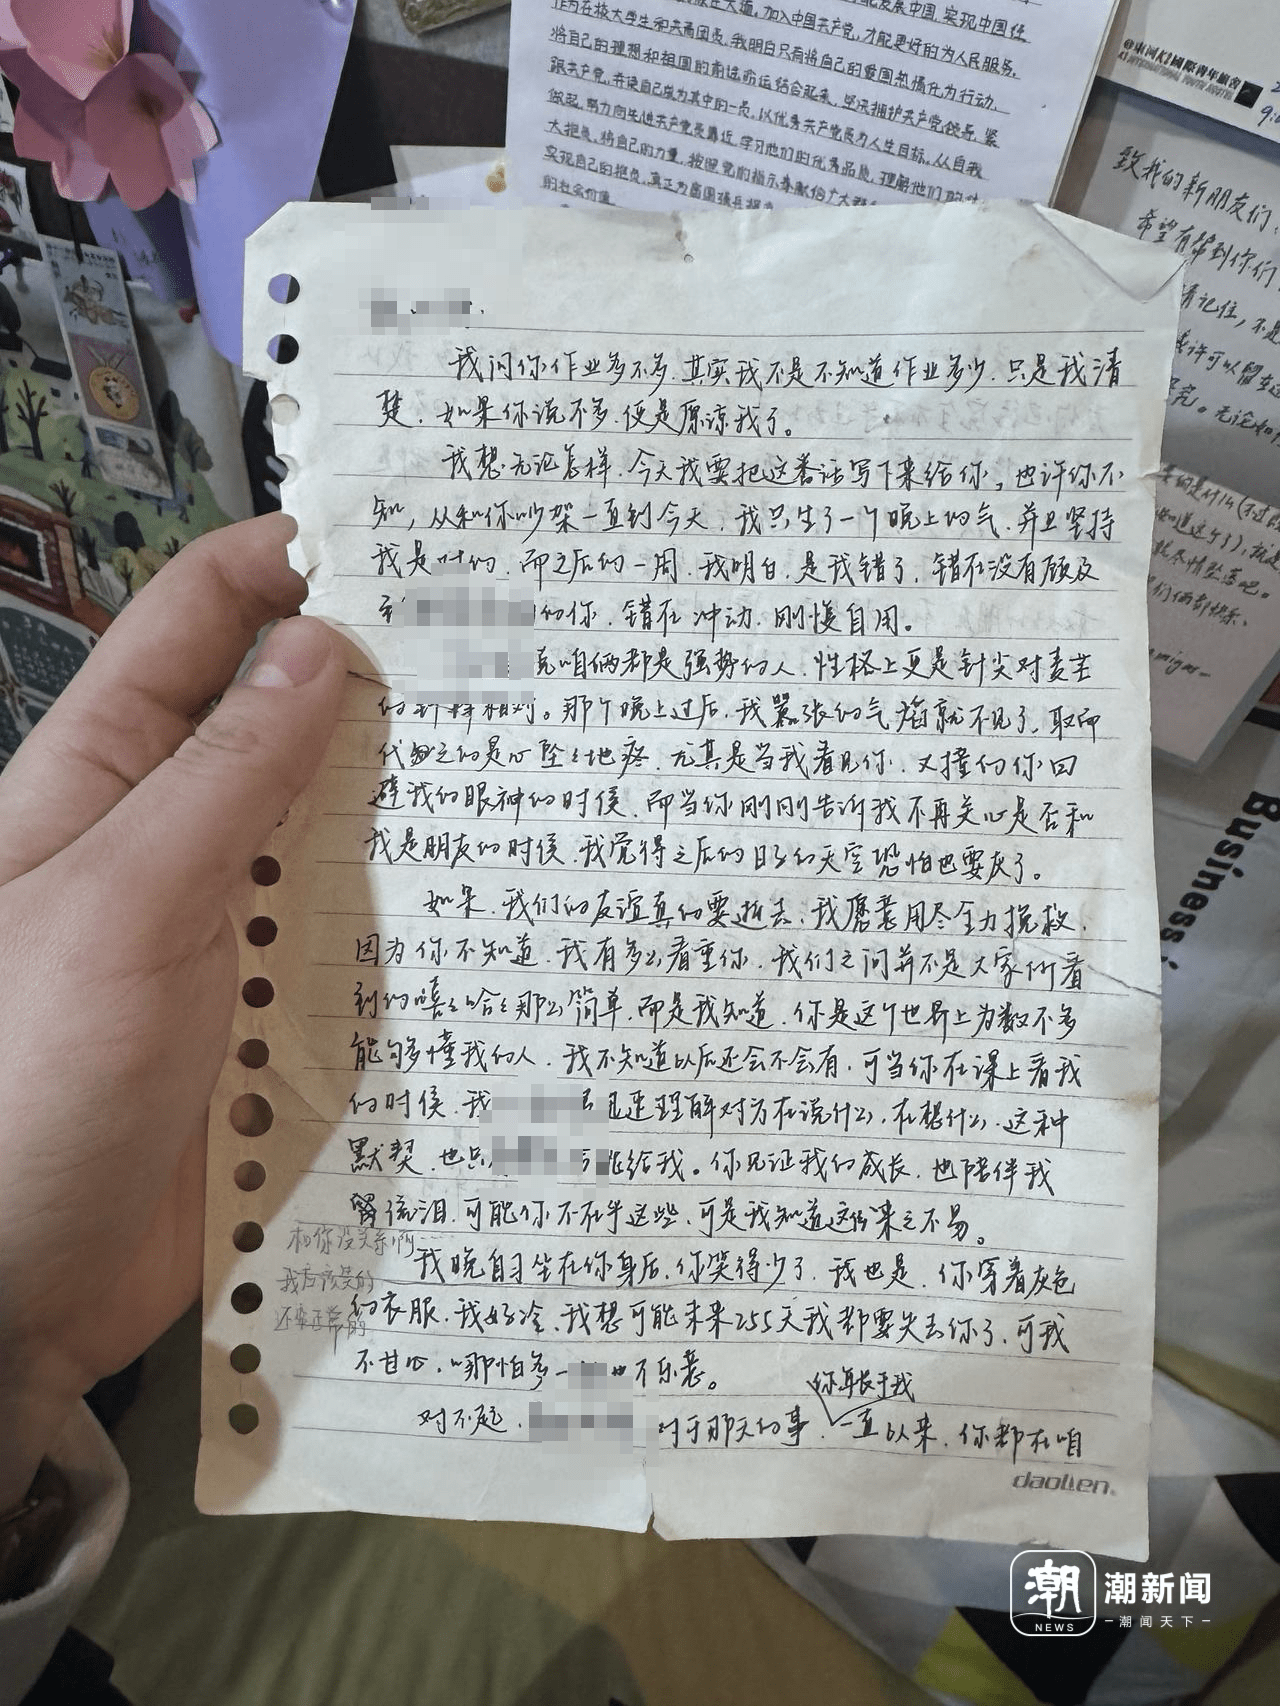 发展中国,实现中国
加入中国共产党,才能更好的为人民服务。
作为在校大学生和共青团员,我明白只有将自己的爱国热情化为行动,
将自己的理想和祖国的前途命运结合起来,坚决拥护共产党领导,紧
跟共产党,并使自己成为其中的一员,以优秀共产党员为人生目标。从自我
做起,努力向先进共产党员靠近,学习他们的优秀品质,理解他们的
大担负,将自己的力量,按照党的指示奉献给广大
实现自己的担负,真正为富国强兵
的社会价值
@东河K2国际青年旅舍
K2 INTERNATIONAL YOUTH HOSTEL
致我的新朋友们:
希望有帮到你们
请记住,不是
许可以留在
完。无论如
知道这个了),
就尽情坠落吧。
Business
我问你作业多不多,其实我不是不知道作业多少,只是我清
楚,如果你说不多,便是原谅我了。
我想无论怎样,今天我要把这番话写下来给你,也许你不
知,从和你吵架一直到今天,我只生了一个晚上的气,并且坚持
我是对的,而之后的一周,我明白,是我错了,错在没有顾及
的你,错在冲动,刚愎自用。
竟咱俩都是强势的人,性格上更是针尖对麦芒
的针锋相对。那个晚上过后,我嚣张的气焰就不见了,取而
代之的是心坠坠地疼,尤其是当我看见你,又撞的你回
避我的眼神的时候,而当你刚刚告诉我不再关心是否和
我是朋友的时候,我觉得之后的日子的天空恐怕也要灰了。
如果,我们的友谊真的要逝去,我愿意用尽全力挽救,
因为你不知道,我有多么看重你,我们之间并不是大家所看
到的嘻嘻哈哈那么简单,而是我知道,你是这个世界上为数不多
能够懂我的人,我不知道以后还会不会有,可当你在课上看我
的时候,我 迅速理解对方在说什么,在想什么,这种
默契,也只 能给我。你见证我的成长,也陪伴我
流泪,可能你不在乎这些,可是我知道这份来之不易。
和你没关系啊
我应该笑的
还蛮正常的
我晚自习坐在你身后,你笑得少了,我也是,你穿着灰色
的衣服,我好冷,我想可能未来255天我都要失去你了,可我
不甘心,哪怕多一 也不乐意。
你年长于我
对不起, 对于那天的事,一直以来,你都在咱
daolien
潮
NEWS
潮新闻
潮闻天下